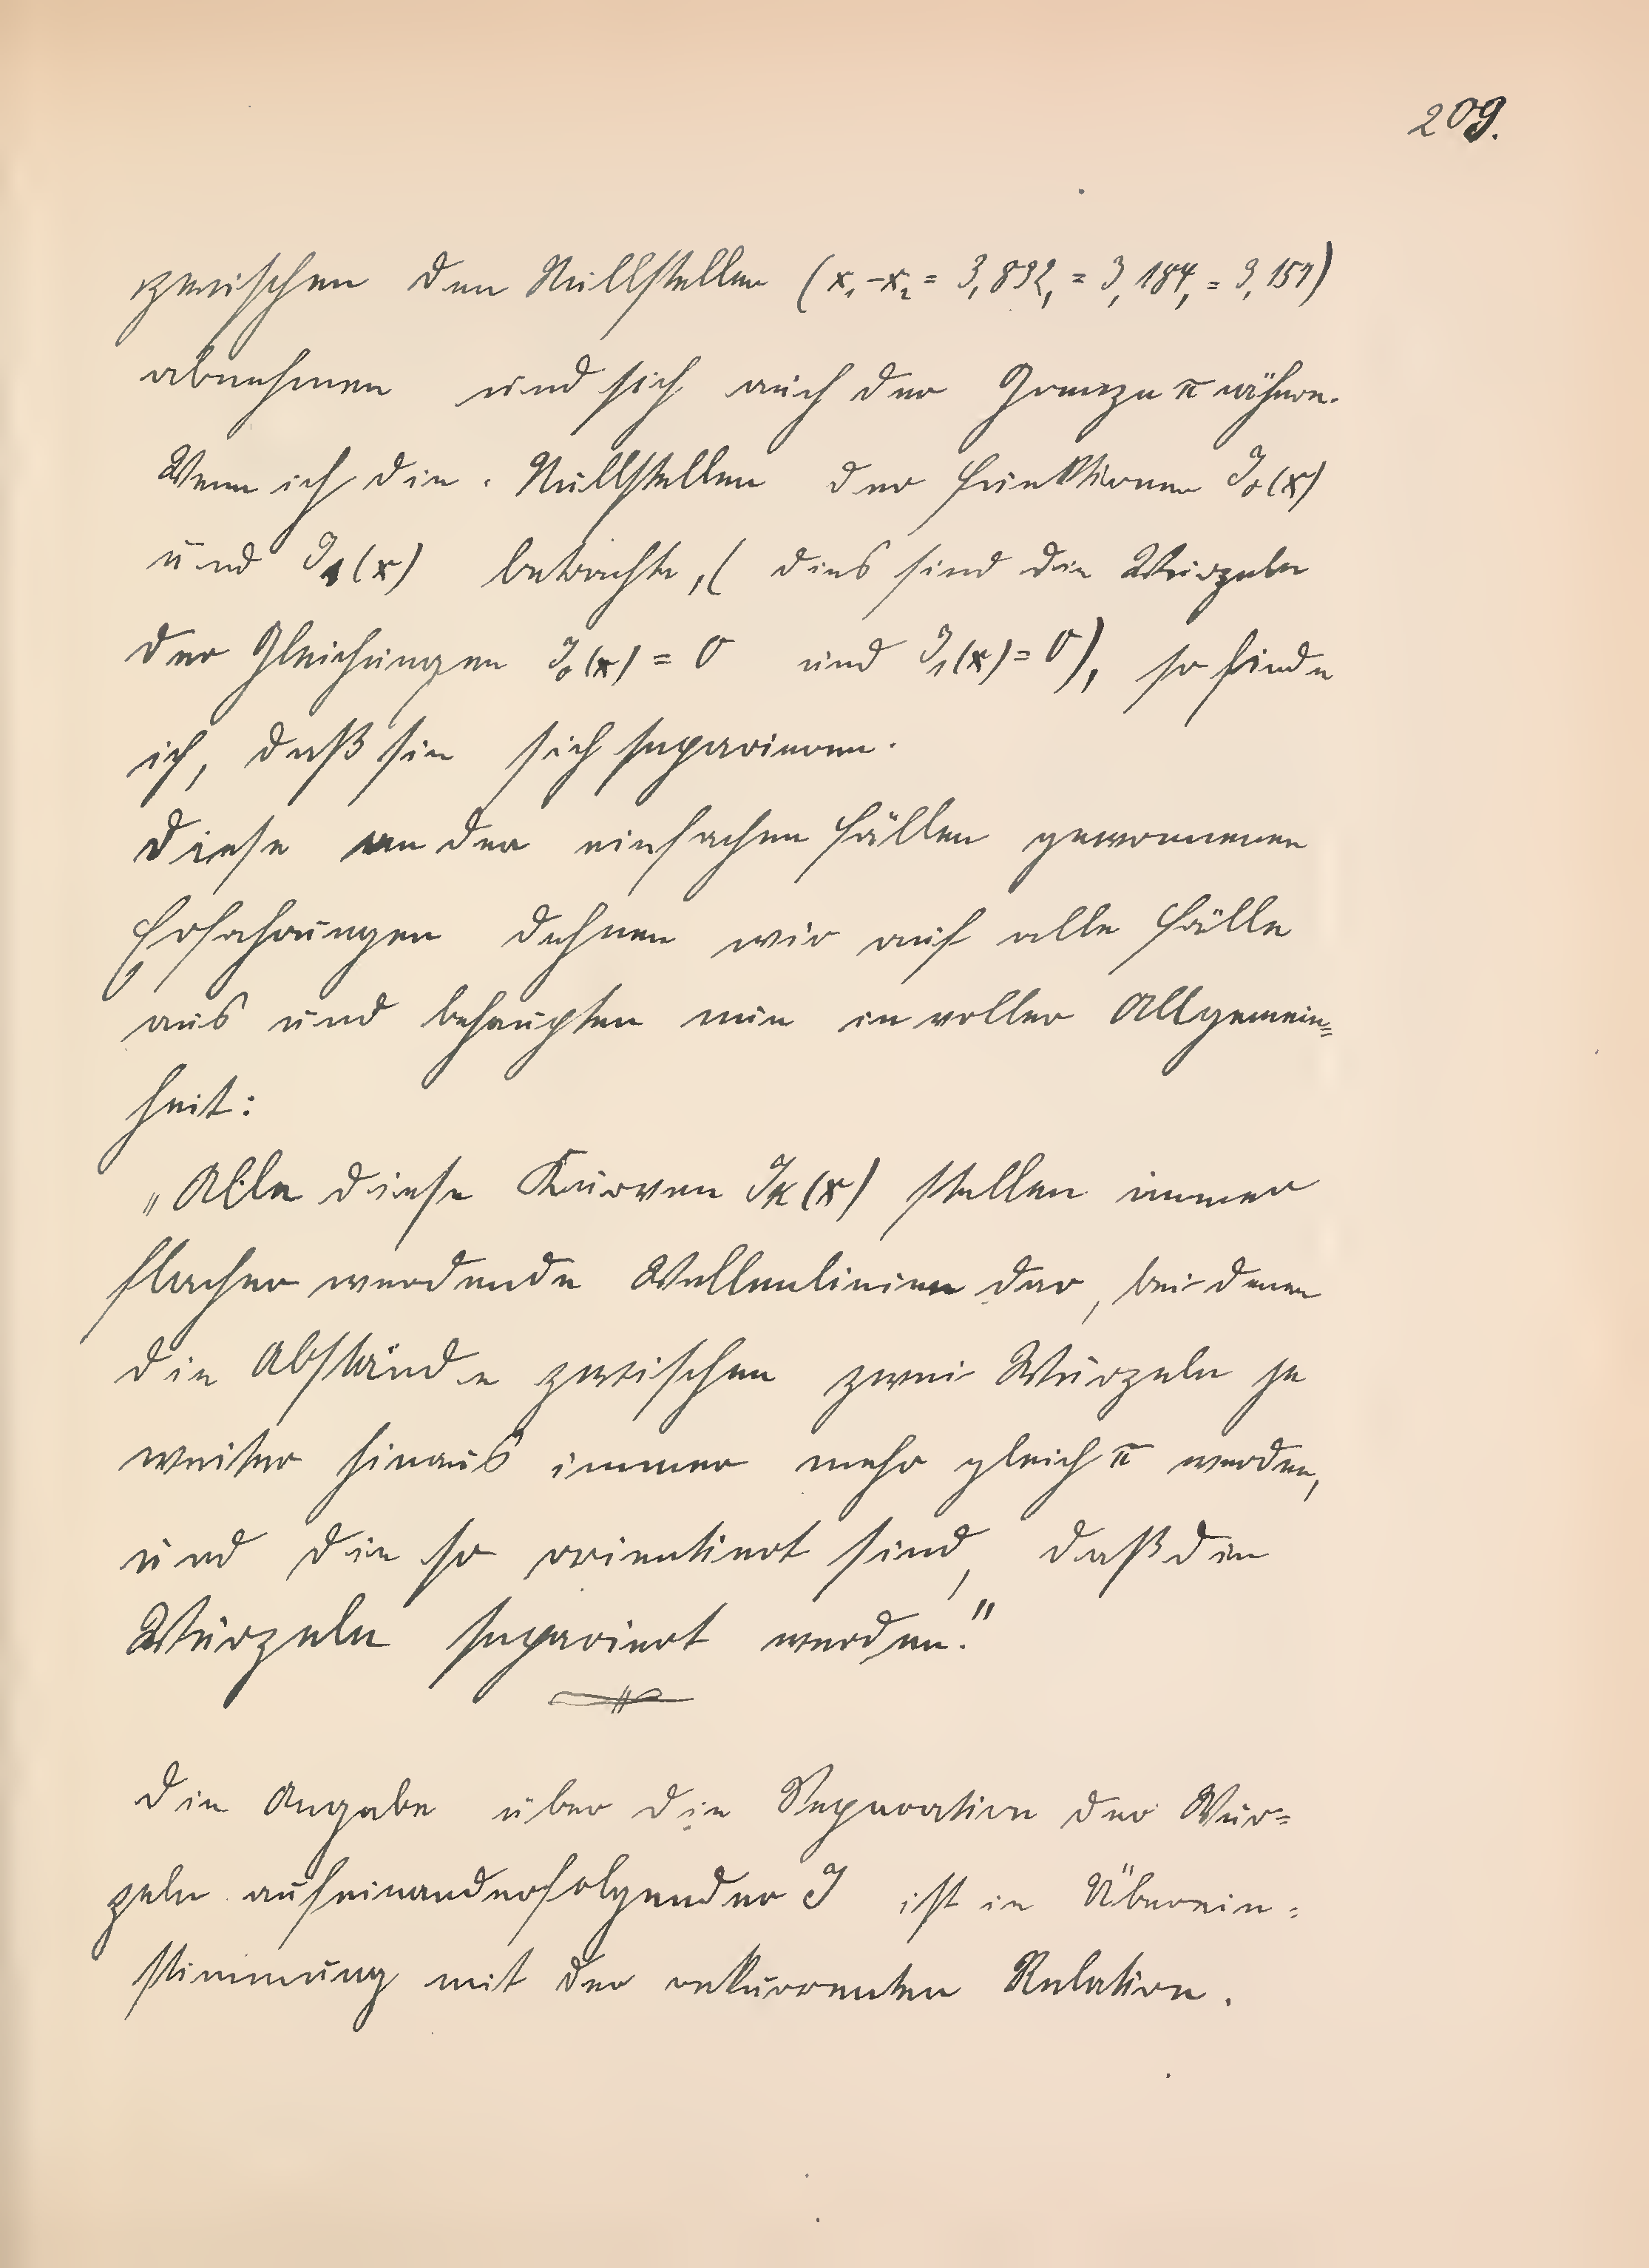 209.
zwischen den Nullstellen (x₁-x₂ = 3,832, = 3,184, = 3,157)
abnehmen und sich auch der Grenze π nähern.
Wenn ich die Nullstellen der Funktionen J₀(x)
und J₁(x) betrachte, (dies sind die Wurzeln
der Gleichungen J₀(x) = 0 und J₁(x) = 0), so finde
ich, daß sie sich separieren.
Diese an den einfachen Fällen gewonnenen
Erfahrungen dehnen wir auf alle Fälle
aus und behaupten nun in voller Allgemein=
heit:
„Alle diese Kurven Jₖ(x) stellen immer
flacher werdende Wellenlinien dar, bei denen
die Abstände zwischen zwei Wurzeln je
weiter hinaus immer mehr gleich π werden,
und die so orientiert sind, daß die
Wurzeln separiert werden."
Die Angabe über die Separation der Wur=
zeln aufeinanderfolgender J ist in Überein=
stimmung mit der rekurrenten Relation.